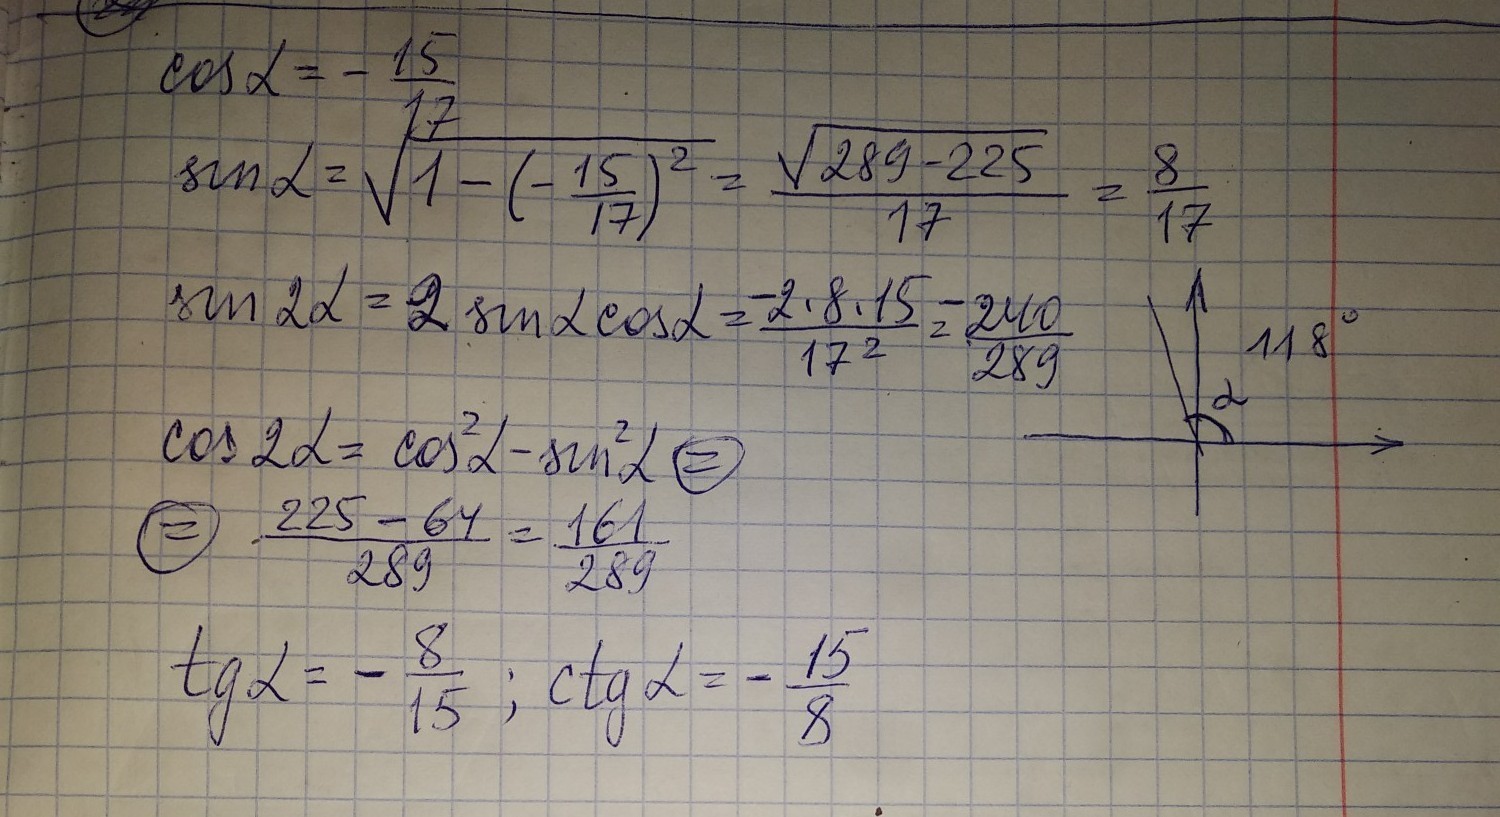 cos α = - 15/17
sin α = √(1 - (- 15/17)²) = √(289 - 225)/17 = 8/17
sin 2α = 2 sin α cos α = -2·8·15/17² = -240/289
118°
α
cos 2α = cos²α - sin²α =
= (225 - 64)/289 = 161/289
tg α = - 8/15 ; ctg α = - 15/8